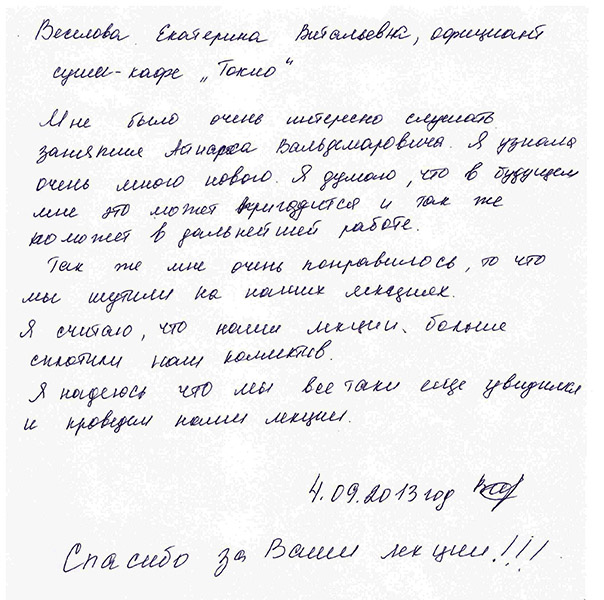 Веселова Екатерина Витальевна, официант
суши-кафе „Токио“
Мне было очень интересно слушать
занятия Айварса Вальдемаровича. Я узнала
очень много нового. Я думаю, что в будущем
мне это может пригодится и так же
поможет в дальнейшей работе.
Так же мне очень понравилось, то что
мы шутили на наших лекциях.
Я считаю, что наши лекции больше
сплотили наш коллектив.
Я надеюсь что мы все таки еще увидимся
и проведем наши лекции.
4.09.2013 год
Спасибо за Ваши лекции!!!